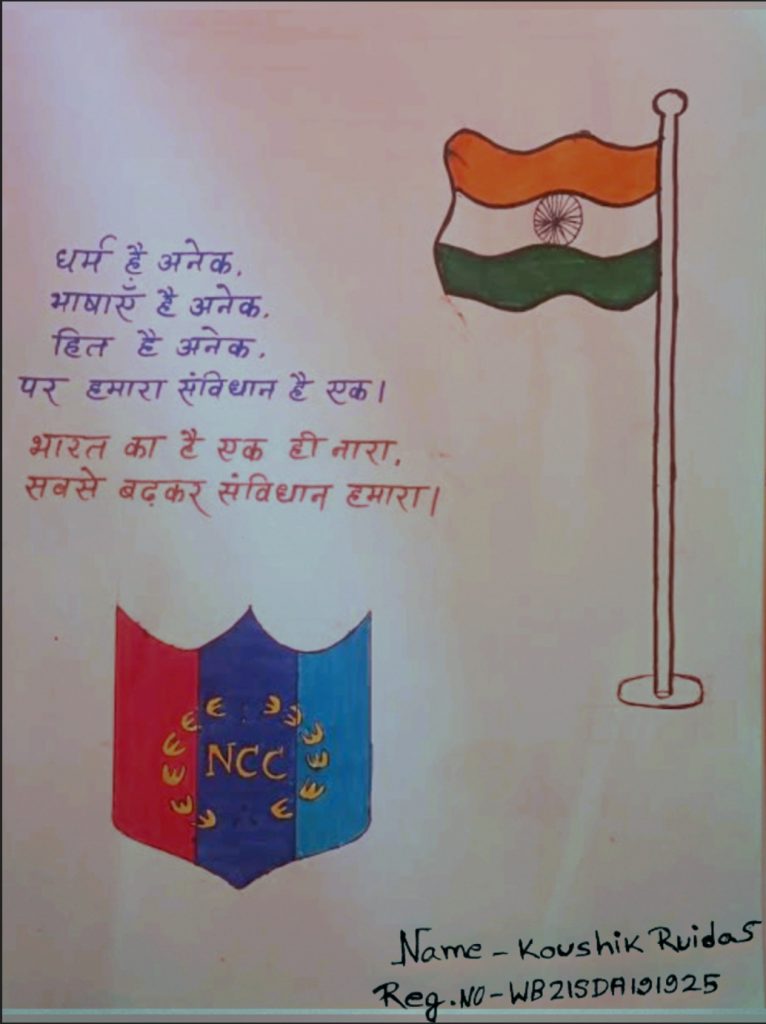 धर्म है अनेक,
भाषाएँ है अनेक,
हित है अनेक,
पर हमारा संविधान है एक।
भारत का है एक ही नारा,
सबसे बढ़कर संविधान हमारा।
NCC
Name - Koushik Ruidas
Reg.NO-WB21SDA191925